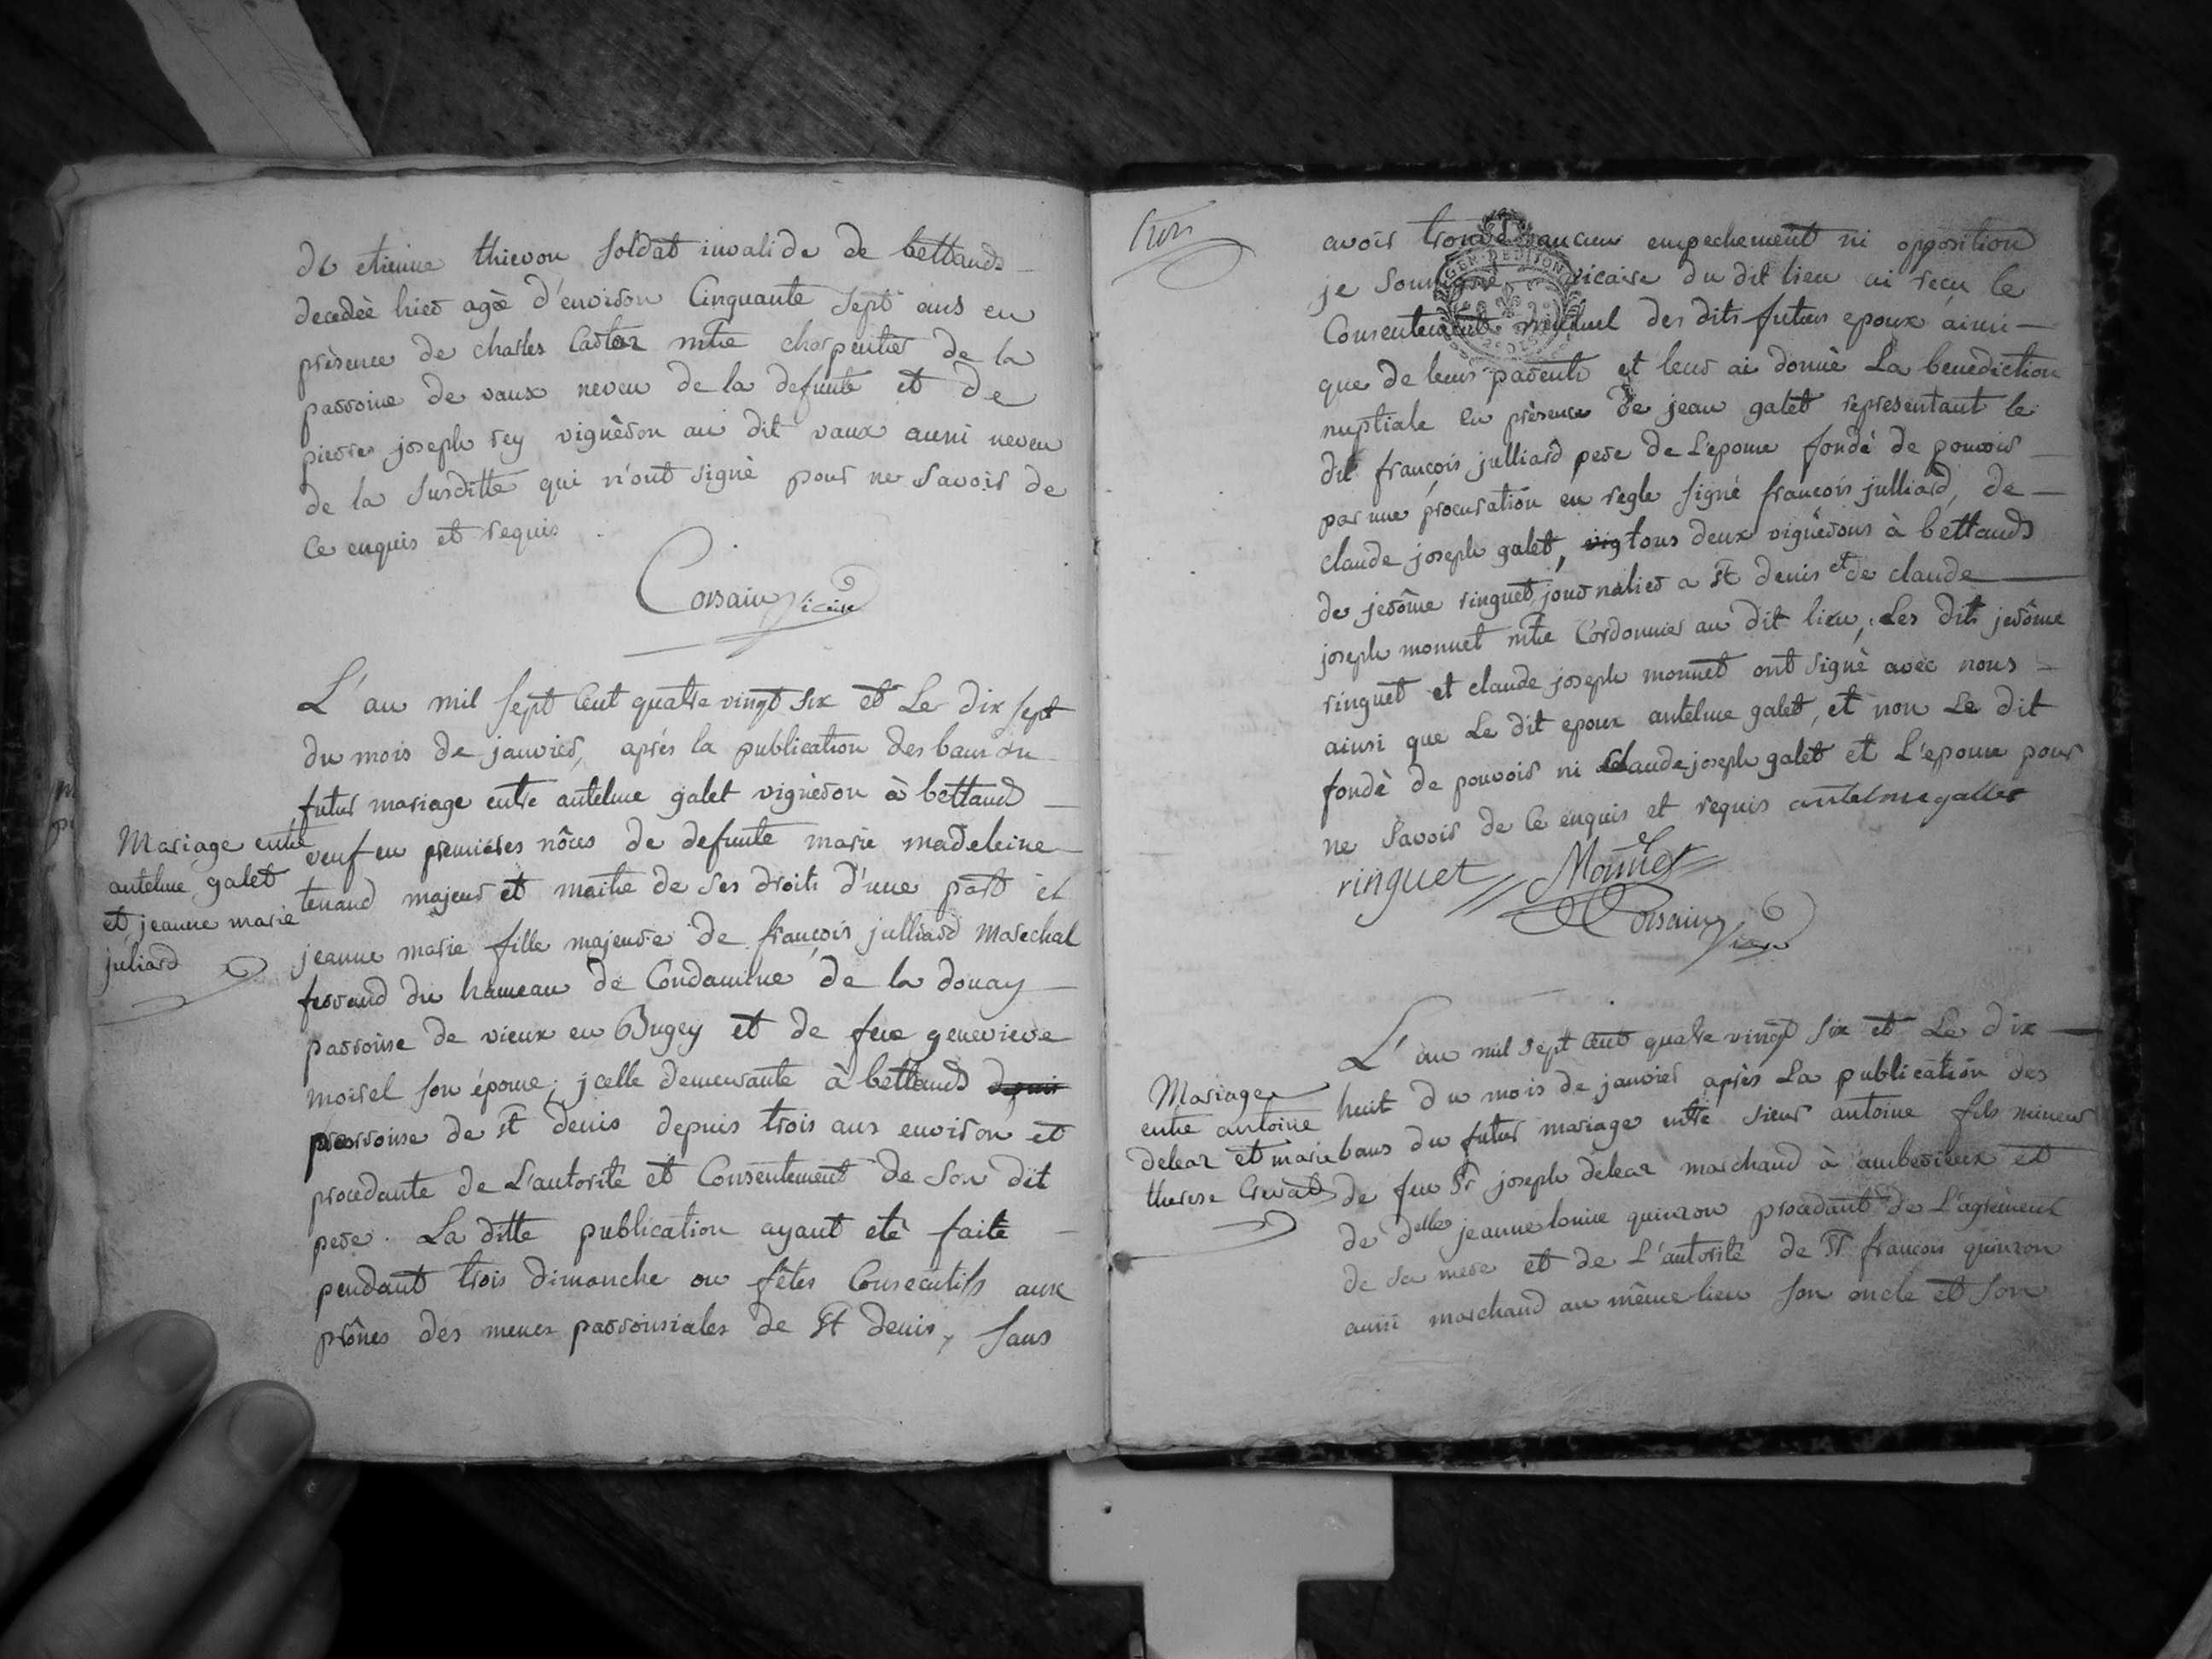 de etienne thievon soldat invalide de bettands
decedèe hier agèe d'environ Cinquante sept ans en
prèsence de charles Castaz mtre charpentier de la
parroisse de vaux neveu de la defunte et de
pierre joseph rey vignèron au dit vaux aussi neveu
de la susditte qui n'ont signè pour ne savoir de
Ce enquis et requis
Corsain vicaire
L'an mil sept Cent quatre vingt six et Le dix sept
du mois de janvier, aprés la publication des bans du
futur mariage entre antelme galet vignèron à bettand
veuf en premiéres nôces de defunte marie madeleine
tenand majeur et maitre de ses droits d'une part et
jeanne marie fille majeure de françois julliard Marechal
ferrand du hameau de Condamine de la douay
parroisse de vieux en Bugey et de feue genevieve
moirel son épouse; jcelle demeurante à bettands depuis
parroisse de St denis depuis trois ans environ et
procedante de L'autorité et Consentement de Son dit
pere. La ditte publication ayant etè faite
pendant trois dimanche ou fêtes Consecutifs aux
prônes des messes parroissiales de St denis, sans
Mariage entre
antelme galet
et jeanne marie
juliard
trois
avoir trouvè aucun empechement ni opposition
je soussigné vicaire du dit lieu ai recu le
Consentement mutuel des dits futurs epoux ainsi
que de leurs parents et leur ai donnè La benediction
nuptiale en prèsence de jean galet representant le
dit françois julliard pere de L'epouse fondè de pouvoir
par une procuration en regle signé françois julliard, de
claude joseph galet, vig tous deux vignèrons à bettands
de jerôme ringuet journalier a St denis et de claude
joseph monnet mtre Cordonnier au dit lieu, Les dits jerôme
ringuet et claude joseph monnet ont signè avec nous
ainsi que Le dit epoux antelme galet, et non Le dit
fondè de pouvoir ni claude joseph galet et L'epouse pour
ne Savoir de Ce enquis et requis antelme gallet
ringuet Monnet
Corsain vicaire
L'an mil sept Cent quatre vingt six et Le dix
huit du mois de janvier après La publication des
bans du futur mariage entre sieur antoine fils mineur
de feu Sr joseph deleaz marchand à amberieux et
de delle jeanne louise quinson procedant de L'agrèment
de sa mere et de L'autorité de Sr françois quinson
aussi marchand au même lieu son oncle et son
Mariage
entre antoine
deleaz et marie
therese Crevat